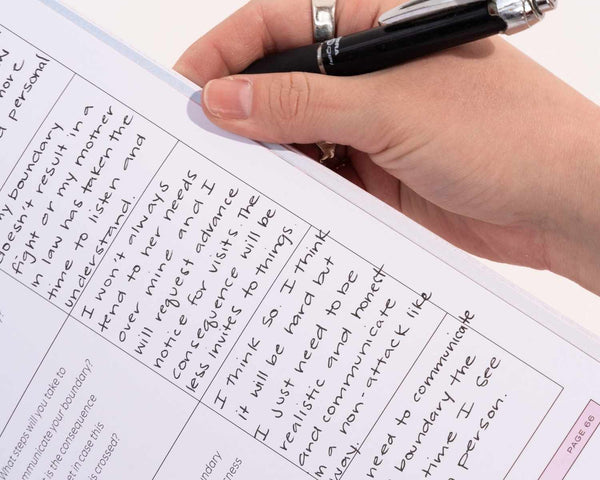 more
personal
my boundary
doesn't result in a
fight or my mother
in law has taken the
time to listen and
understand.
I won't always
tend to her needs
over mine and I
will request advance
notice for visits. The
consequence will be
less invites to things.
I think so. I think
it will be hard but
I just need to be
realistic and honest
and communicate
in a non-attack like
way.
need to communicate
boundary the
time I see
person.
What steps will you take to
communicate your boundary?
is the consequence
in case this
is crossed?
PAGE 66